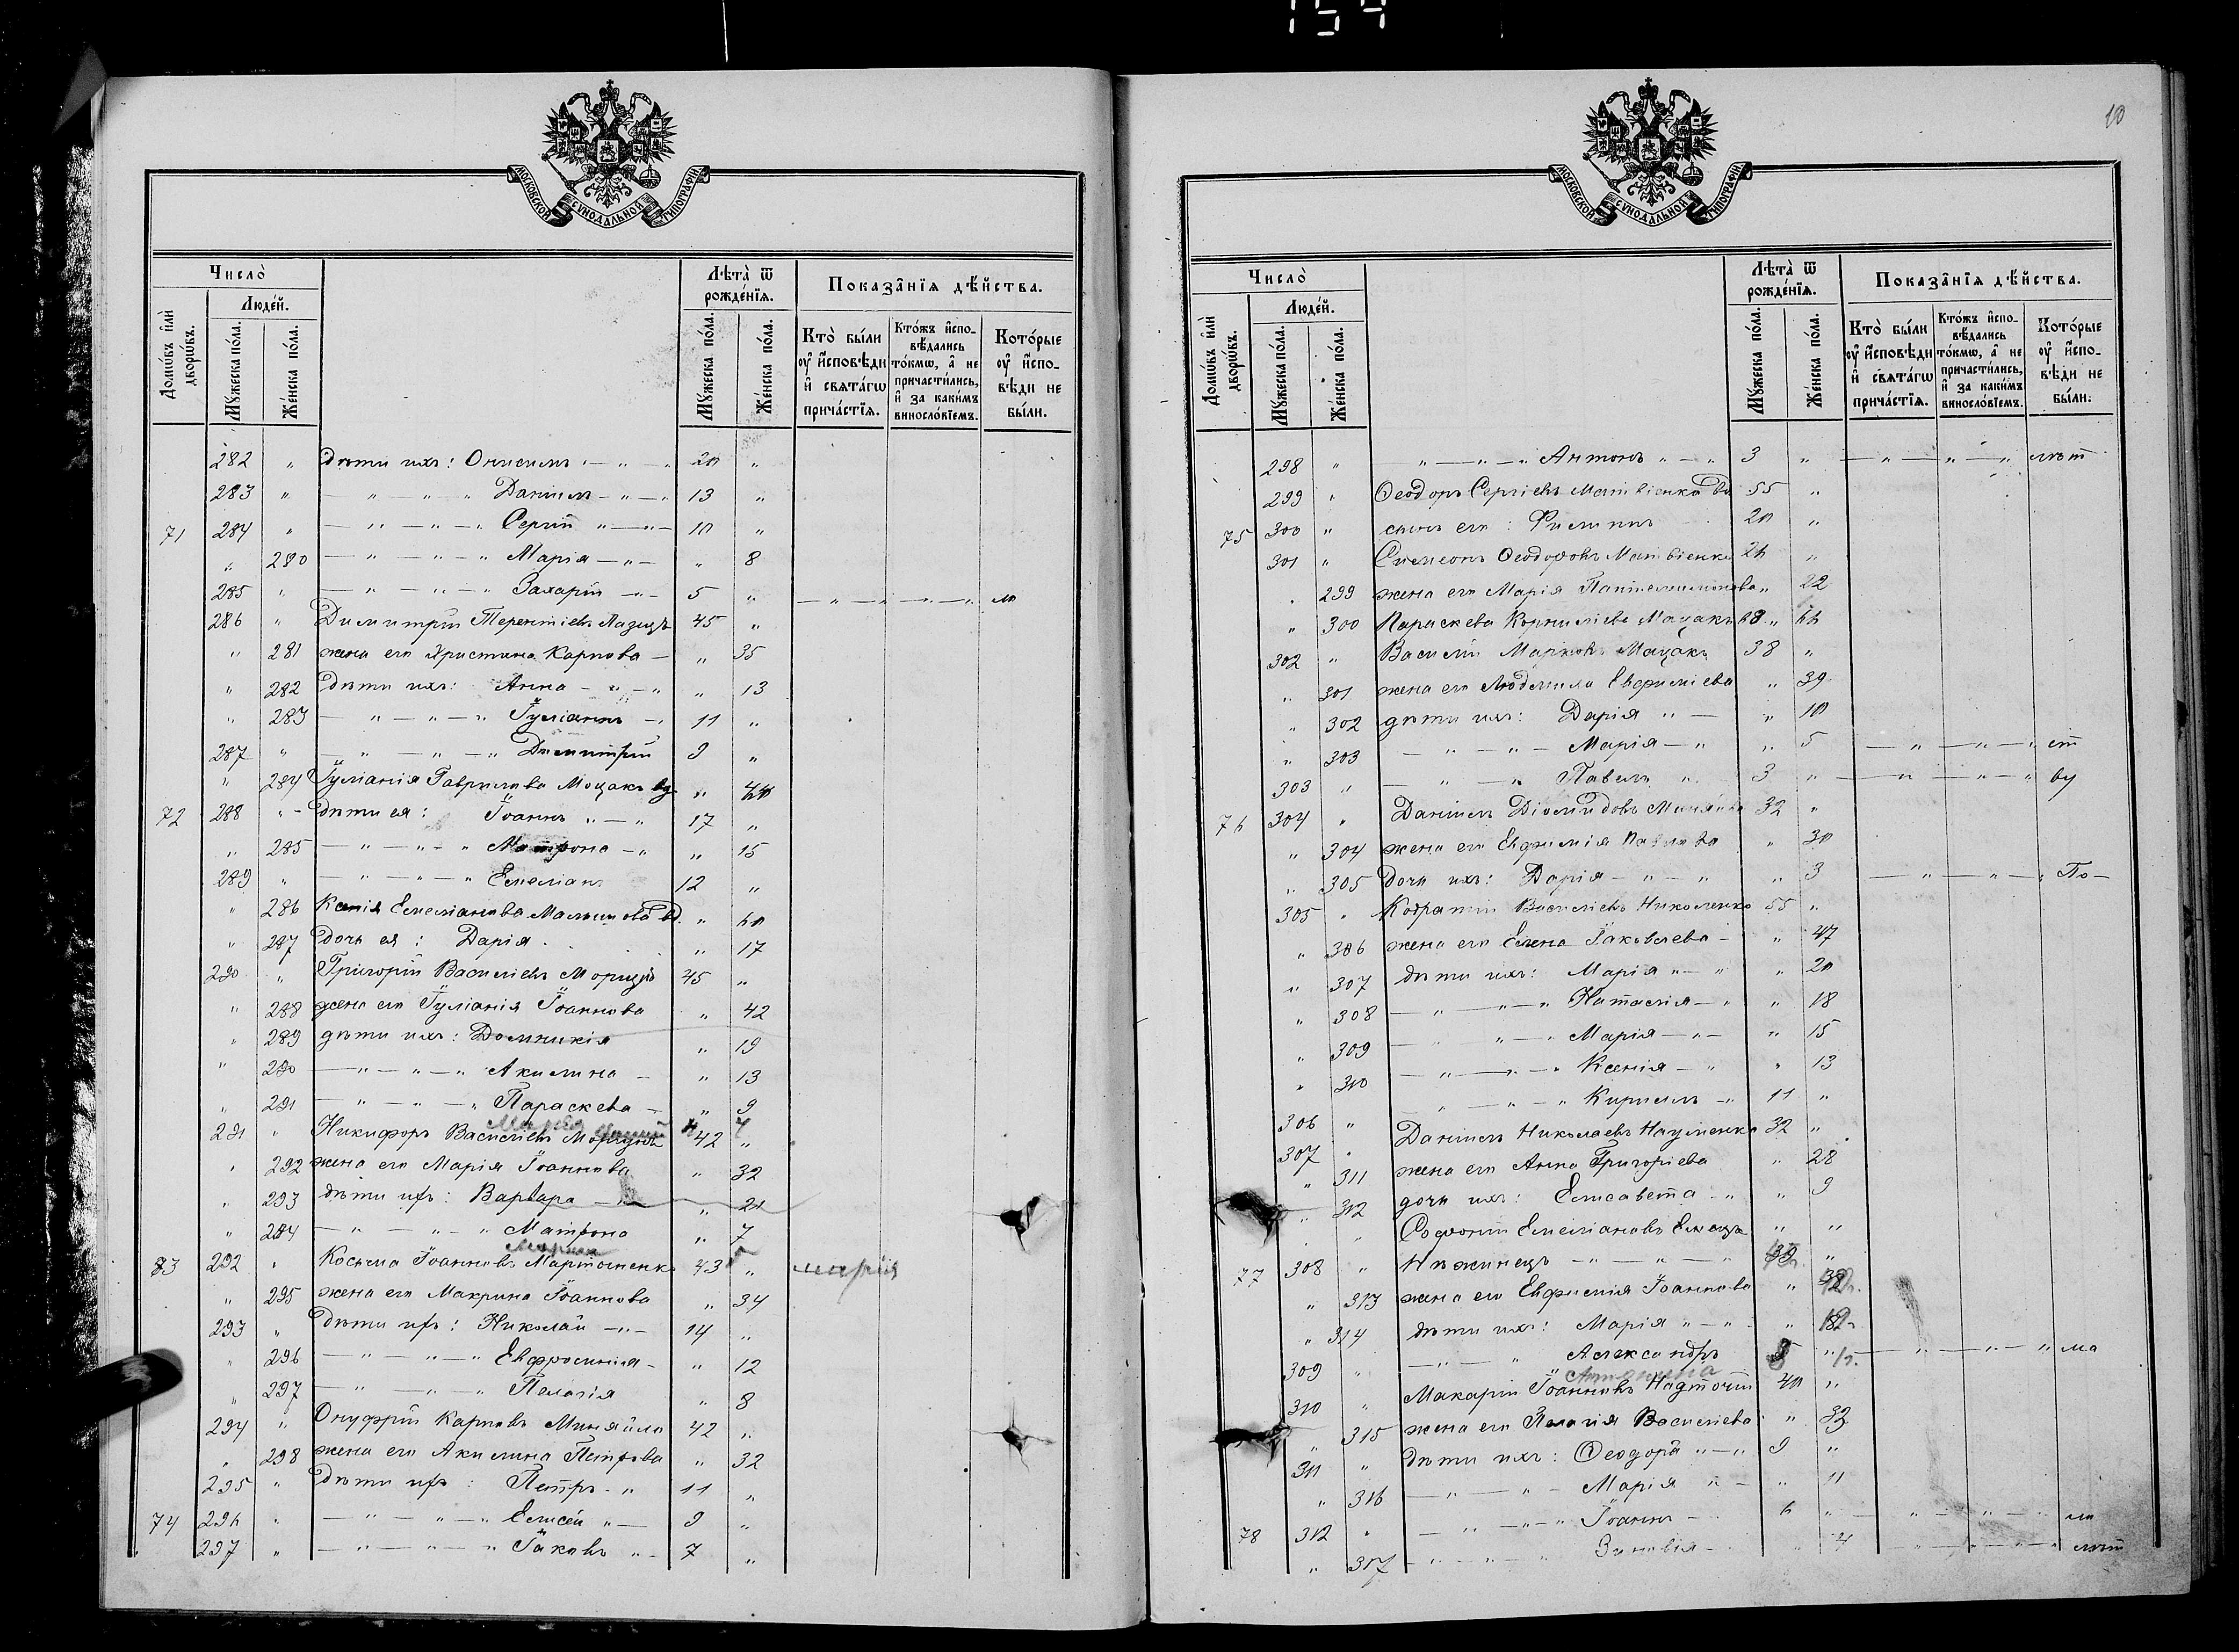 154
МОСКОВСКОЙ СѴНОДАЛЬНОЙ ТИПОГРАФІИ
Число̀
Домѡ́въ и҆лѝ дворѡ́въ.
Люде́й.
Мꙋ́жеска по́ла.
Же́нска по́ла.
Лѣ́та ѿ рожде́нїѧ.
Мꙋ́жеска по́ла.
Же́нска по́ла.
Показа̑нїѧ дѣ́йства.
Кто̀ бы́ли ᲂу҆ и҆сповѣ́ди и҆ свѧта́гѡ прича́стїѧ.
Кто́жъ и҆сповѣ́дались то́кмѡ, а҆ не причасти́лись, и҆ за каки́мъ винослѡ́вїемъ.
Кото́рые ᲂу҆ и҆сповѣ́ди не бы́ли.
282 " дѣти ихъ: Онисимъ " — " — " 20 "
283 " — " — " — " Даніилъ — " — " 13 "
71 284 " — " — " — " Сергій " — " — 10 "
" 280 — " — " — " Марія — " — " 8
285 " — " — " — " Захарій — " — 5 " — " — " — " —
286 " Димитрій Терентіевъ 45 "
" 281 жена его Христина Карпова — " 35
" 282 Дѣти ихъ: Анна — " — " " 13
" 283 — " — " — " Іуліанъ — " 11 "
287 " — " — " — " Димитрій 9 "
" 284 Іуліанія Гаврилова Моцакъ "
72 288 " Дѣти ея: Іоаннъ " — " 17 "
" 285 — " — " — " Матрона — " " 15
289 " — " — " — " Емеліанъ 12 "
" 286 Ксенія Емеліанова "
" 287 дочь ея: Дарія " 17
290 " Григорій Василіевъ 45 "
" 288 жена его Іуліанія Іоаннова " 42
" 289 дѣти ихъ: Домникія " 19
" 290 — " — " — " Акилина — " 13
" 291 — " — " — " Параскева — " 9
291 " Никифоръ Василіевъ 42 "
" 292 жена его Марія Іоаннова " 32
" 293 дѣти ихъ: Варвара — " 21
" 294 — " — " — " Матрона " 7
83 292 " Косьма Іоанновъ 43 " марія
" 295 жена его Макрина Іоаннова " 34
293 " Дѣти ихъ: Николай — " — 14 "
" 296 — " — " — " Евфросинія — " 12
" 297 — " — " — " Пелагія " 8
294 " Онуфрій Карповъ Миняйло 42 "
" 298 жена его Акилина Петрова " 32
295 " Дѣти ихъ: Петръ — " 11 "
74 296 " — " — " — " Елисей " — 9 "
297 " — " — " — " Іаковъ " — 7 "
10
МОСКОВСКОЙ СѴНОДАЛЬНОЙ ТИПОГРАФІИ
Число̀
Домѡ́въ и҆лѝ дворѡ́въ.
Люде́й.
Мꙋ́жеска по́ла.
Же́нска по́ла.
Лѣ́та ѿ рожде́нїѧ.
Мꙋ́жеска по́ла.
Же́нска по́ла.
Показа̑нїѧ дѣ́йства.
Кто̀ бы́ли ᲂу҆ и҆сповѣ́ди и҆ свѧта́гѡ прича́стїѧ.
Кто́жъ и҆сповѣ́дались то́кмѡ, а҆ не причасти́лись, и҆ за каки́мъ винослѡ́вїемъ.
Кото́рые ᲂу҆ и҆сповѣ́ди не бы́ли.
298 " " — " — " Антонъ " — " 3 " — " — " — " лѣт
299 " Ѳеодоръ Сергіевъ Матвіенко вд 55 "
75 300 " сынъ его: Филиппъ 20 "
301 " Симеонъ Ѳеодоровъ Матвіенко 26 "
" 299 жена его Марія Пантелеимонова " 22
" 300 Параскева Корниліева Мацакъ "
302 " Василій Марковъ Мацакъ 38 "
" 301 жена его Людмила Евфиміева " 39
" 302 дѣти ихъ: Дарія " — " 10
" 303 — " — " — Марія — " " 5 — " — " — " ст
303 " — " — " Павелъ " 3 " — " — " — " ву
76 304 " Даніилъ Діомидовъ 32 "
" 304 жена его Евфимія Павлова " 30
" 305 Дочь ихъ: Дарія — " — " " 3 — " — " — " По —
305 " Кодратій Василіевъ Николенко 55 "
" 306 жена его Елена Іаковлева — " 47
" 307 дѣти ихъ: Марія " — " " 20
" 308 — " — " — " Наталія — " " 18
" 309 — " — " Марія — " — " 15
" 310 — " — " — " Ксенія — " " 13
306 " — " — " — " Кириллъ — " 11 "
307 " Даніилъ Николаевъ Науменко 32 "
" 311 жена его Анна Григоріева " 28
" 312 дочь ихъ: Елисавета — " " 9
Софоній Емеліановъ Емецъ " "
77 308 " Нѣжинецъ — " — " — " "
" 313 жена его Евфимія Іоаннова "
" 314 дѣти ихъ: Марія " — " "
309 " — " — " Александръ " — " — " — " ма
Антонина
310 " Макарій Іоанновъ Надточій 40 "
" 315 жена его Пелагія Василіева " 32
311 " дѣти ихъ: Ѳеодоръ " — " 9 "
" 316 — " — " — " Марія " — " 11
78 312 " — " — " — " Іоаннъ — 6 " — " — " — "
" 317 — " — " — " Зиновія — " 4 — " — " — " лѣт